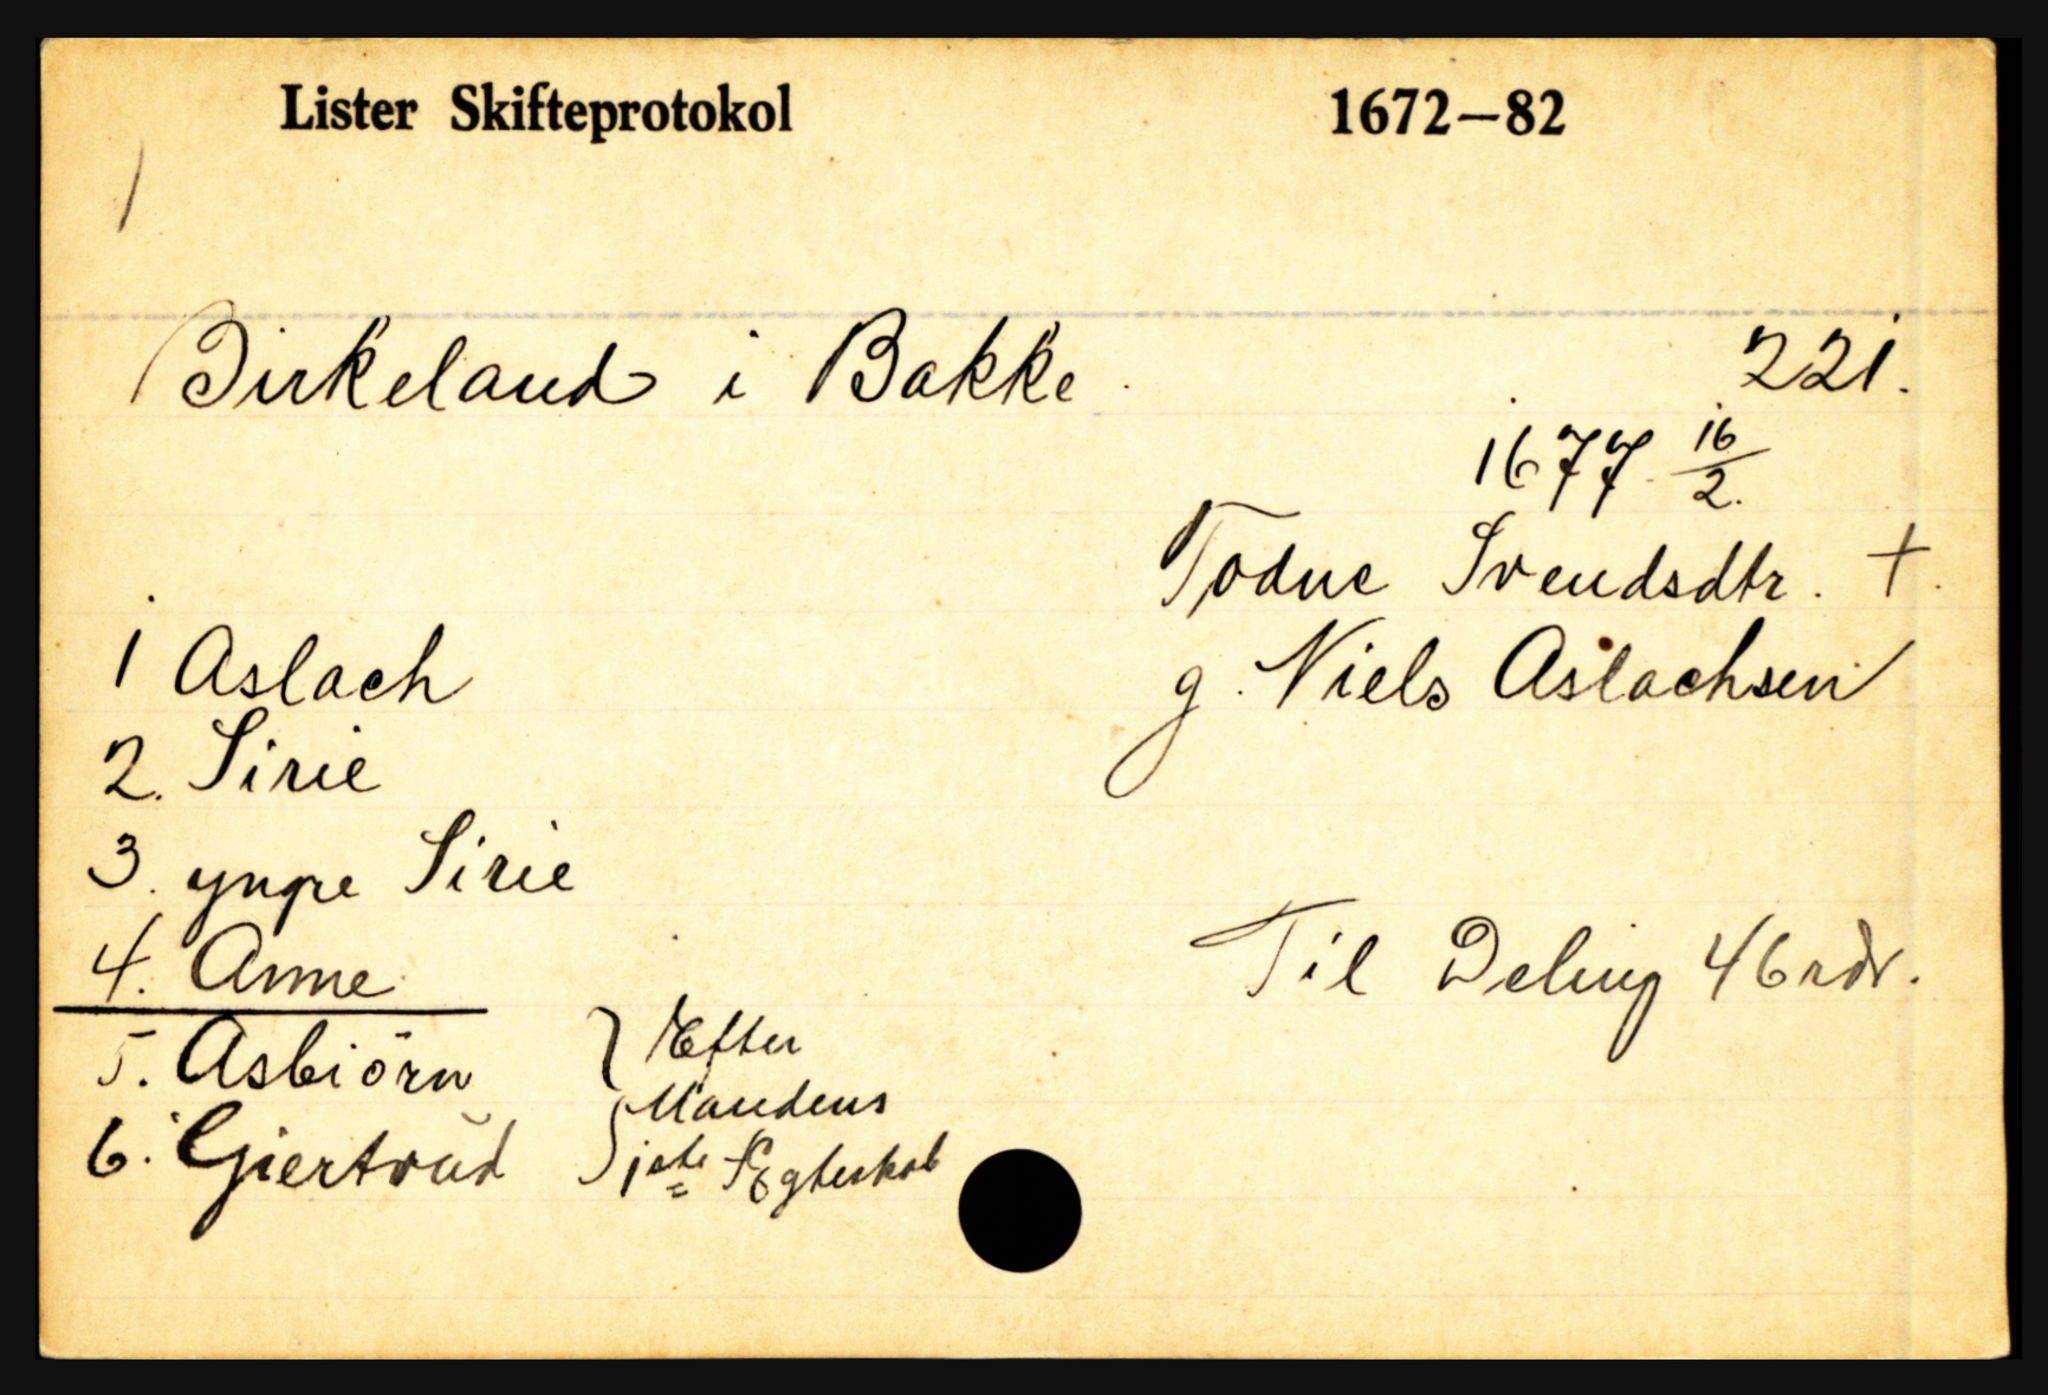 Lister Skifteprotokol 1672–82
Birkeland i Bakke. 221.
1677 16/2.
Todne Svendsdtr. +.
1 Aslach
g. Niels Aslachsen
2. Sirie
3. yngre Sirie
4. Anne
Til Deling 46 rdr.
5. Asbiörn
6. Giertrud
} Efter
Mandens
1ste Egteskab